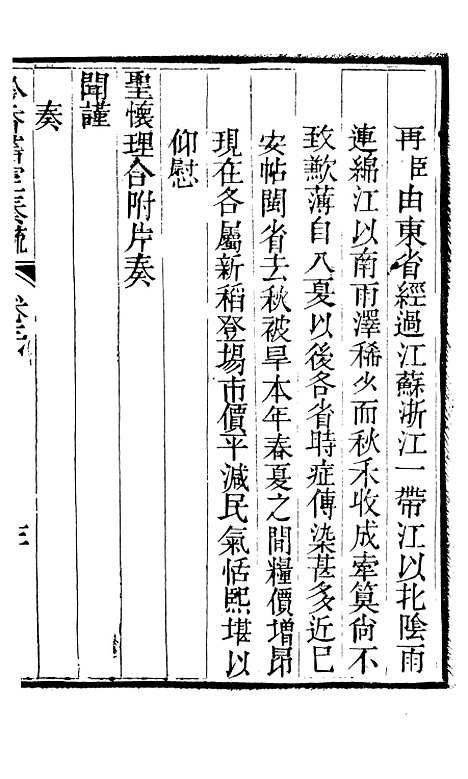 再臣由東省經過江蘇浙江一帶江以北陰雨
連綿江以南雨澤稀少而秋禾收成牽算尙不
致歉薄自入夏以後各省時症傳染甚多近已
安帖閩省去秋被旱本年春夏之間糧價增昂
現在各屬新稻登場市價平減民氣恬熙堪以
仰慰
聖懷理合附片奏
聞謹
奏
齋室奏疏 卷三 三